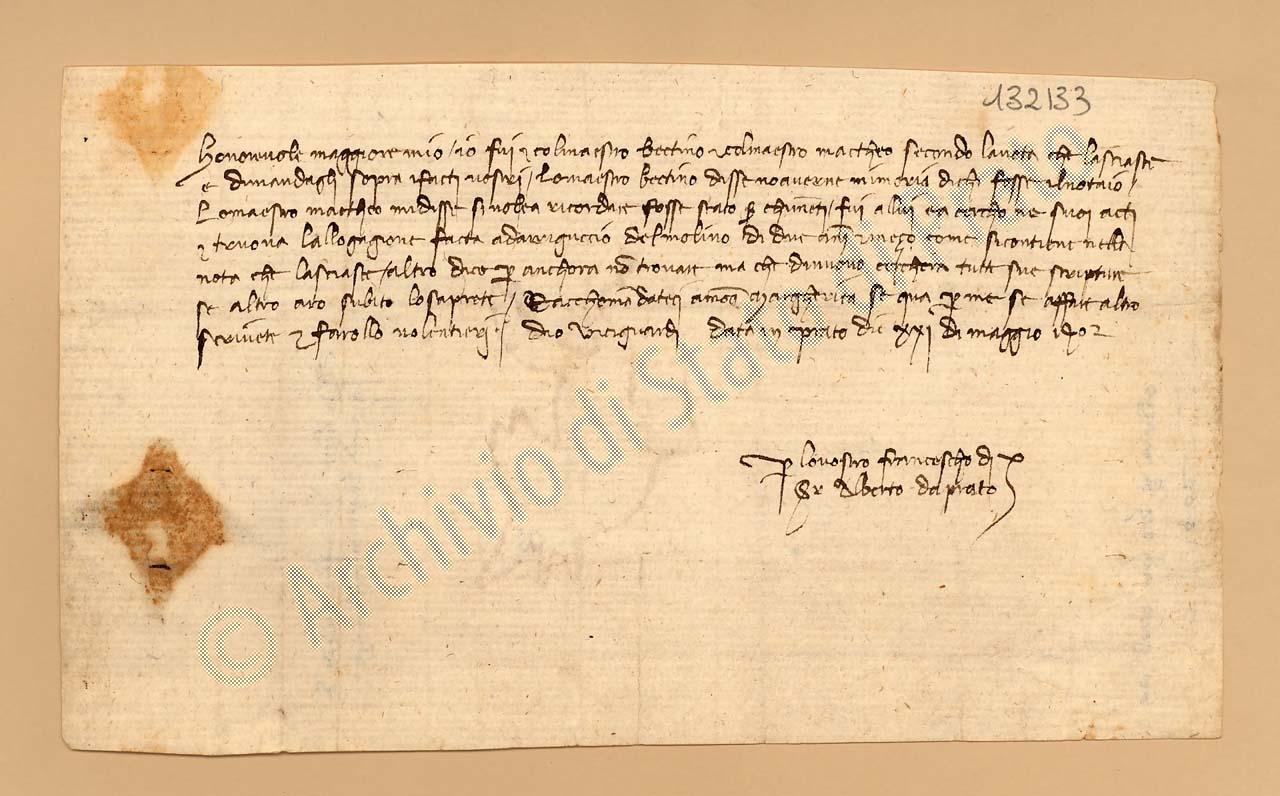 132133
Honorevole maggiore mio / io fui col maestro bettino e col maestro mattheo secondo la nota che lasciaste
e dimandagli sopra i facti vostri / Lo maestro bettino disse no averne memoria di chi fosse il notaio /
Lo maestro mattheo mi disse si volea ricordare fosse stato s chimenti / fui a lui e a cercho ne suoi acti
e truova l allogagione facta ad arriguccio del molino di due anni e meço come si contiene nella
nota che lasciaste / altro dice p anchora no trovare ma che di nuovo cerchera tutte sue scripture
se altro aro subito lo saprete / Racchomandateci a mo Margherita se qua p me se affare altro
scrivete e farollo volentieri / dio vi guardi data in prato die xxi di maggio 1402
p lo vostro francescho di
Ser Alberto da prato
© Archivio di Stato di Prato